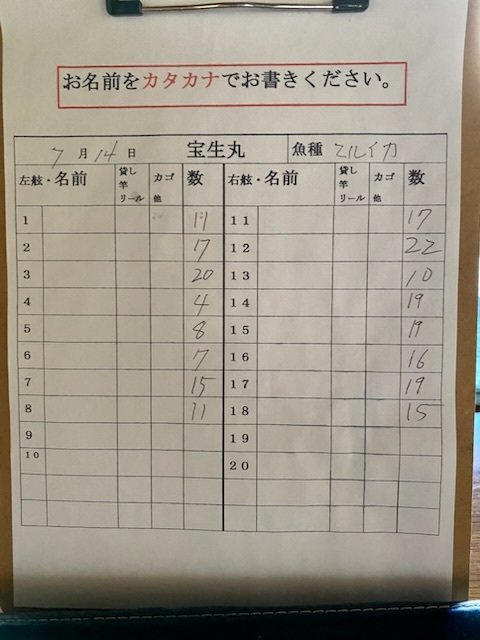 お名前をカタカナでお書きください。
7月14日 宝生丸 魚種 マルイカ
左舷・名前 貸し竿リール カゴ他 数 右舷・名前 貸し竿リール カゴ他 数
1 11 17
2 17 12 22
3 20 13 10
4 4 14 19
5 8 15
6 7 16 16
7 15 17 19
8 11 18 15
9 19
10 20